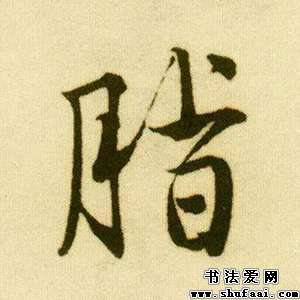 脂
书法爱网
www.shufaai.com